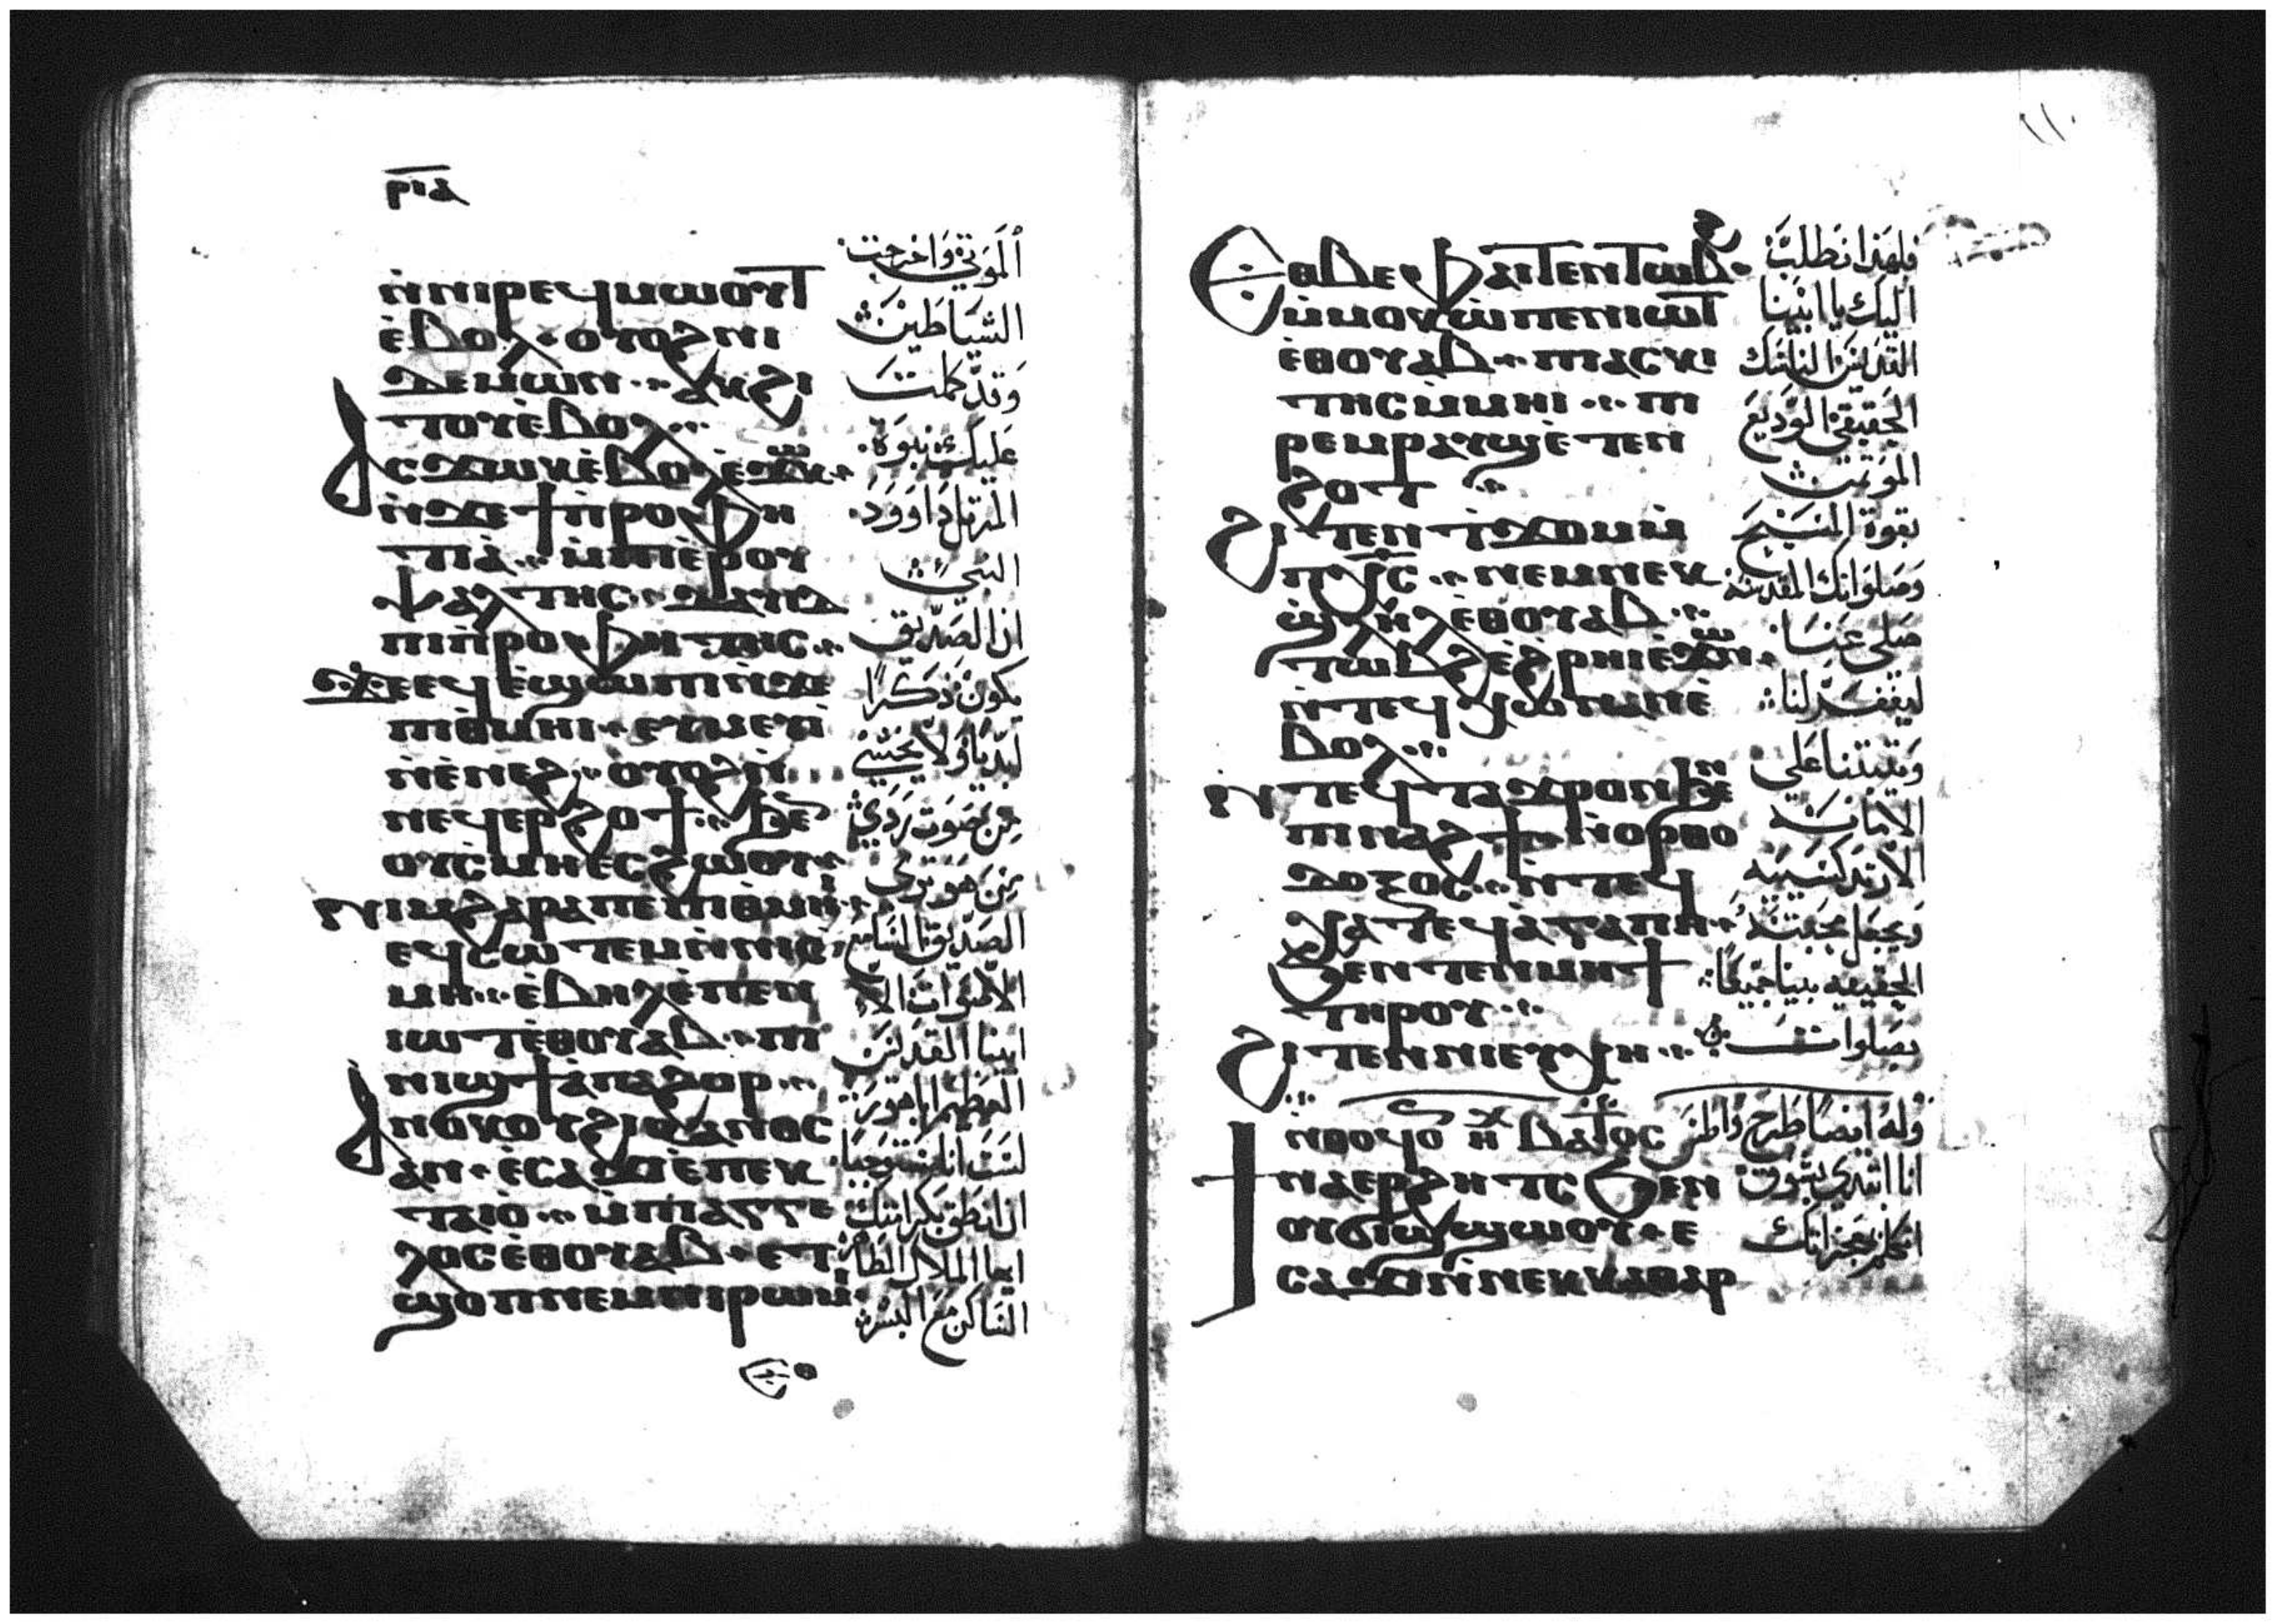 ⲣⲓⲁ
ⲛ̀ⲛⲓⲣⲉϥⲙⲱⲟⲩⲧ
ⲉ̀ⲃⲟⲗ · ⲟⲩⲟϩ ⲛⲓ
ⲇⲉⲙⲱⲛ ·· ⲁⲕϩⲓ
ⲧⲟⲩ ⲉ̀ⲃⲟⲗ ··
ⲁⲥϫⲱⲕ ⲉ̀ⲃⲟⲗ ⲉ̀ϫⲱⲕ ·
ⲛ̀ϫⲉ ϯⲡ̀ⲣⲟⲫⲏ
ⲧⲓⲁ̀ ·· ⲙ̀ⲡⲓⲉ̀ⲣⲟⲩ
ⲯⲁⲗⲧⲏⲥ ·· ⲇⲁⲩⲓⲇ
ⲡⲓⲡ̀ⲣⲟⲫⲏⲧⲏⲥ ··
ϫⲉ ⲉϥⲉ̀ϣⲱⲡⲓ ⲛ̀ϫⲉ
ⲡⲓⲑⲙⲏⲓ · ⲉⲩⲙⲉⲩⲓ̀
ⲛ̀ⲉ̀ⲛⲉϩ ·· ⲟⲩⲟϩ ⲛ̀
ⲛⲉϥⲉⲣϩⲟϯ ·· ϧⲉ
ⲟⲩⲥ̀ⲙⲏ ⲉⲥϩⲱⲟⲩ ·
ⲛⲓⲙ ϩⲁⲣⲁ ⲡⲉ ⲡⲓⲑⲙⲏⲓ ·
ⲉϥⲥⲱⲧⲉⲙ ⲛ̀ⲛⲓⲥ̀
ⲙⲏ ·· ⲉ̀ⲃⲏⲗ ⲉ̀ⲡⲉⲛ
ⲓⲱⲧ ⲉ̀ⲑⲟⲩⲁⲃ ·· ⲡⲓ
ⲛⲓϣϯ ⲁ̀ⲡⲁ ϩⲟⲣ ··
ⲁⲛⲟⲕ ⲟⲩϩⲓⲕⲁⲛⲟⲥ
ⲁⲛ · ⲉ̀ⲥⲁϫⲓ ⲉ̀ⲡⲉⲕ
ⲧⲁⲓⲟ̀ ·· ⲙ̀ⲡⲓⲁⲅⲅⲉ
ⲗⲟⲥ ⲉ̀ⲑⲟⲩⲁⲃ · ⲉⲧ
ϣⲟⲡ ⲛⲉⲙ ⲛⲓⲣⲱⲙⲓ ·
الموتى واخرجت
الشياطين
وقد كملت
عليك نبوة
المرتل داوود
النبي
ان الصديق
يكون ذكرًا
لبديا ولا يخشى
من صوت ردي
من هو ترى
الصديق السامع
الاصوات الا
ابينا القديس
العظيم ابا هور
لست انا مستوجبا
ان انطق بكرامتك
ايها الملاك الطاهر
الساكن مع البشر
١١٠
ⲉⲑⲃⲉ ⲫⲁⲓ ⲧⲉⲛⲧⲱⲃϩ ·
ⲙ̀ⲙⲟⲕ ⲱ̀ ⲡⲉⲛⲓⲱⲧ
ⲉ̀ⲑⲟⲩⲁⲃ · ⲡⲓⲁⲥⲕⲓ
ⲧⲏⲥ ⲙ̀ⲙⲏⲓ ·· ⲡⲓ
ⲣⲉⲙⲣⲁⲩϣ ⲉ̀ⲧⲉⲛ
ϩⲟⲧ ··
ϩⲓⲧⲉⲛ ϯϫⲟⲙ ⲙ̀
ⲡⲭⲥ ·· ⲛⲉⲙ ⲛⲉⲕ
ϣ̀ⲗⲏⲗ ⲉ̀ⲑⲟⲩⲁⲃ ··
ⲧⲱⲃϩ ⲉ̀ϩ̀ⲣⲏⲓ ⲉ̀ϫⲱⲛ ·
ⲛ̀ⲧⲉϥⲭⲱ ⲛⲁⲛ ⲉ̀
ⲃⲟⲗ ··
ⲛ̀ⲧⲉϥⲧⲁϫⲣⲟⲛ ϧⲉⲛ
ⲡⲓⲛⲁϩϯ ⲛ̀ⲟⲣⲑⲟ
ⲇⲟⲝⲟⲥ ·· ⲛ̀ⲧⲉϥ
ⲭⲁ ⲧⲉϥⲁ̀ⲅⲁⲡⲏ ·
ϧⲉⲛ ⲧⲉⲛⲙⲏϯ
ⲧⲏⲣⲟⲩ ··
ϩⲓⲧⲉⲛ ⲛⲓⲉⲩⲭⲏ ··
ⲛⲑⲟϥ ⲟ ⲏⲭ ⲃⲁⲧⲟⲥ
ϯⲛⲁⲉⲣϩⲏⲧⲥ ϧⲉⲛ
ⲟⲩϭⲓϣϣⲱⲟⲩ · ⲉ
ⲥⲁϫⲓ ⲛ̀ⲛⲉⲕⲕⲁⲑⲁⲣ
فلهذا نطلب
اليك يا ابينا
القديس الناسك
الحقيقي الوديع
المؤتمن
بقوة المسيح
وصلواتك المقدسة
صلى عنا
ليغفر لنا
ويثبتنا على
الامانة
الارتدكسية
ويجعل محبته
الحقيقية بينا جميعًا
بصلوات
وله ايضًا طرح واطس
انا ابتدي بتوق
اتكلم بمعجزاتك